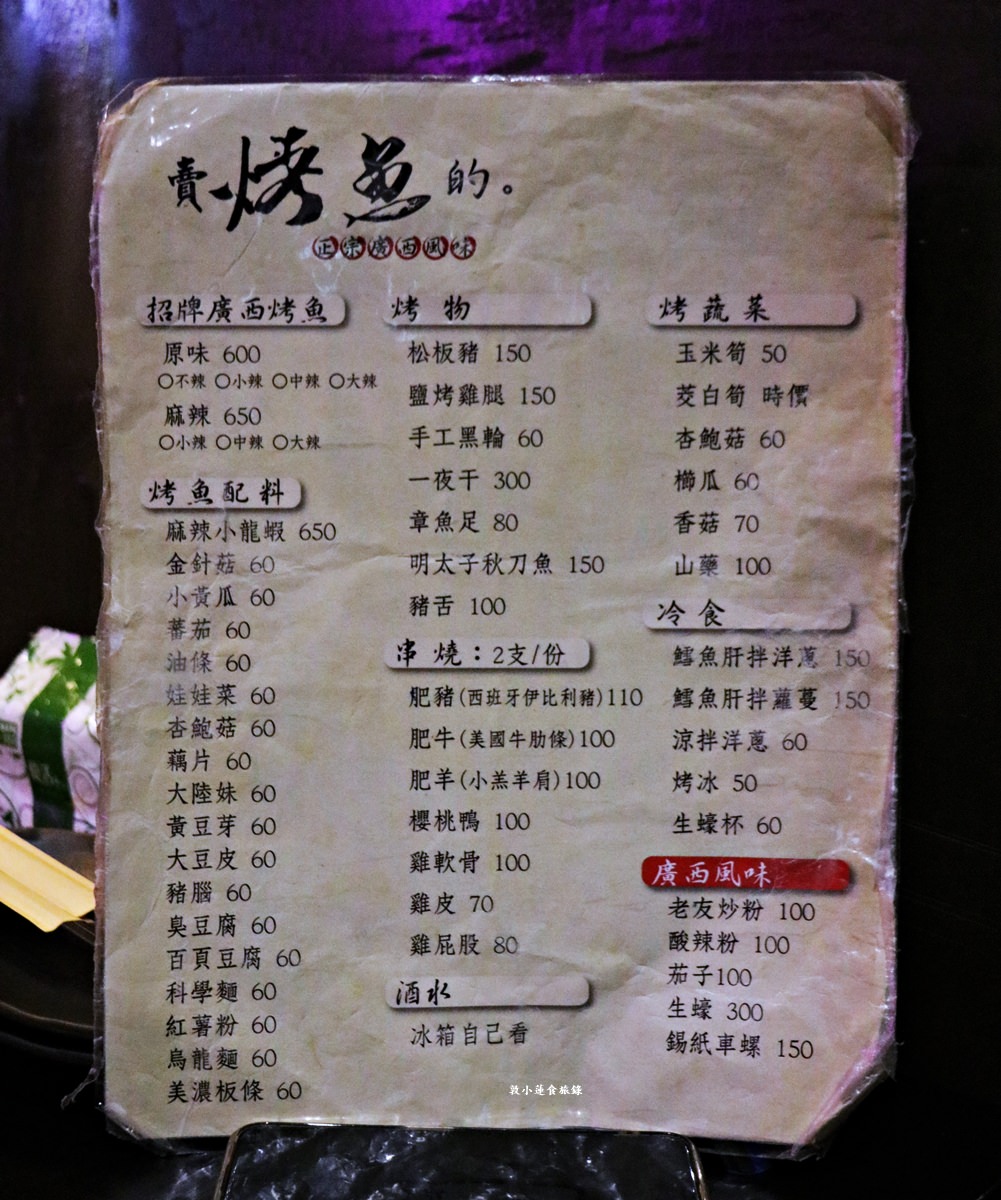 賣烤魚的。
正宗廣西風味
招牌廣西烤魚
原味 600
○不辣 ○小辣 ○中辣 ○大辣
麻辣 650
○小辣 ○中辣 ○大辣
烤魚配料
麻辣小龍蝦 650
金針菇 60
小黃瓜 60
蕃茄 60
油條 60
娃娃菜 60
杏鮑菇 60
藕片 60
大陸妹 60
黃豆芽 60
大豆皮 60
豬腦 60
臭豆腐 60
百頁豆腐 60
科學麵 60
紅薯粉 60
烏龍麵 60
美濃板條 60
烤物
松板豬 150
鹽烤雞腿 150
手工黑輪 60
一夜干 300
章魚足 80
明太子秋刀魚 150
豬舌 100
串燒：2支/份
肥豬(西班牙伊比利豬)110
肥牛(美國牛肋條)100
肥羊(小羔羊肩)100
櫻桃鴨 100
雞軟骨 100
雞皮 70
雞屁股 80
酒水
冰箱自己看
烤蔬菜
玉米筍 50
茭白筍 時價
杏鮑菇 60
櫛瓜 60
香菇 70
山藥 100
冷食
鱈魚肝拌洋蔥 150
鱈魚肝拌蘿蔓 150
涼拌洋蔥 60
烤冰 50
生蠔杯 60
廣西風味
老友炒粉 100
酸辣粉 100
茄子100
生蠔 300
錫紙車螺 150
敦小蓮食旅錄